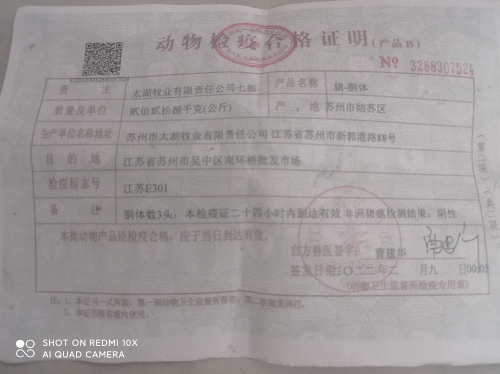 动物检疫合格证明(产品B)
№ 3288307524
货 主 太湖牧业有限责任公司七部 产品名称 猪-胴体
数量及单位 贰佰贰拾捌千克(公斤) 产 地 苏州市姑苏区
生产单位名称地址 苏州市太湖牧业有限责任公司 江苏省苏州市新郭港路88号
目 的 地 江苏省苏州市吴中区南环桥批发市场
检疫标志号 江苏E301
备 注 胴体数3头; 本检疫证二十四小时内到达有效 非洲猪瘟检测结果: 阴性
本批动物产品经检疫合格, 应于当日到达有效。
官方兽医签字: 曹建华
签发日期: 二〇二二年二 月九 日00:05
(动物卫生监督所检疫专用章)
注: 1. 本证书一式两联, 第一联动物卫生监督所留存, 第二联随货同行。
2. 本证书限省境内使用。
(第二联)
SHOT ON REDMI 10X
AI QUAD CAMERA